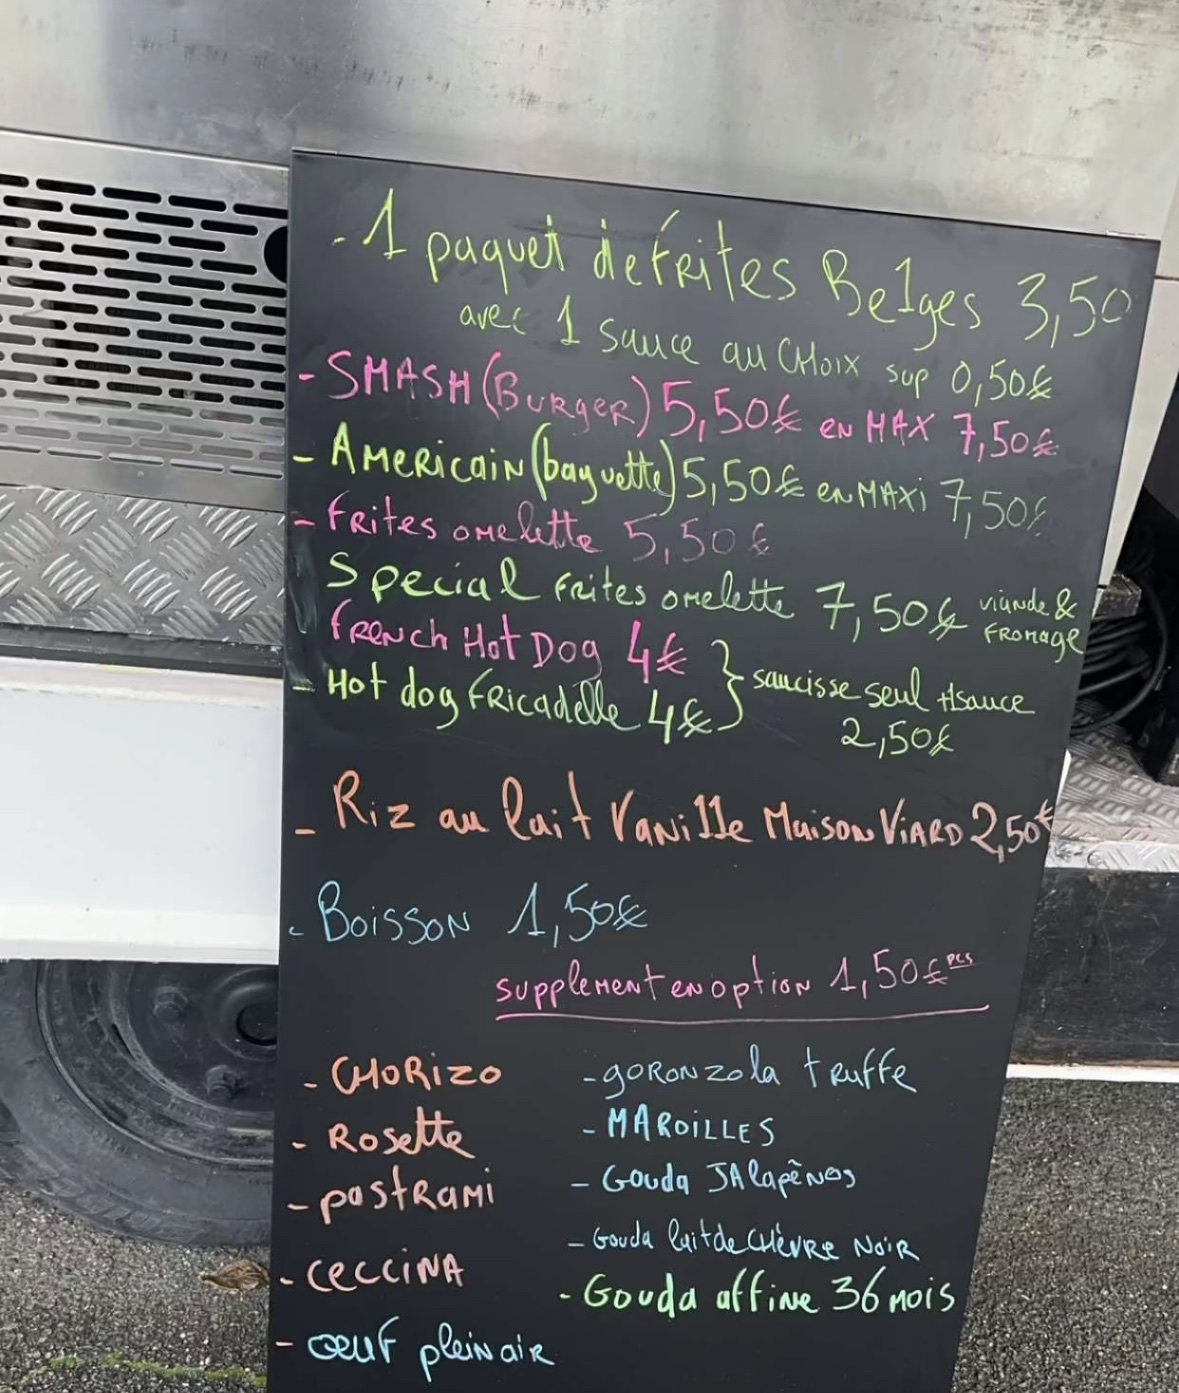 - 1 paquet de Frites Belges 3,50
avec 1 sauce au CHOIX sup 0,50€
- SMASH (BURGER) 5,50€ EN MAX 7,50€
- AMERICAIN (baguette) 5,50€ EN MAXi 7,50€
- FRites omelette 5,50€
Special FRites omelette 7,50€ viande & FROMAGE
FRENCH Hot DOG 4€
- Hot dog FRicadelle 4€ } saucisse seul +1sauce 2,50€
- Riz au lait VaNille Maison ViARD 2,50€
- BOiSSON 1,50€
supplement en option 1,50€ pcs
- CHORizo
- Rosette
- pastRAMi
- CeCCiNA
- œuf plein air
- goRONzola tRuffe
- MAROiLLES
- Gouda JAlapēNos
- Gouda lait de CHèvRe NoiR
- Gouda affiNe 36 mois